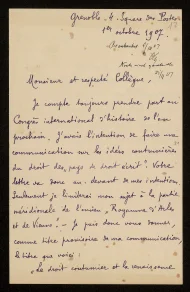 Grenoble. 4. Square des Postes
1er octobre 1907.
Monsieur et respecté Collègue,
Je compte toujours prendre part au
Congrès international d'histoire de l'an
prochain. J'avais l'intention de faire une
communication sur les idées coutumières
du droit des "pays de droit écrit". Votre
lettre va donc au-devant de mes intentions.
Seulement je limiterai mon sujet à la partie
méridionale de l'ancien "Royaume d'Arles
et de Vienne. - Je puis donc vous donner,
comme titre provisoire de ma communication
le titre que voici:
"Le droit coutumier et la renaissance